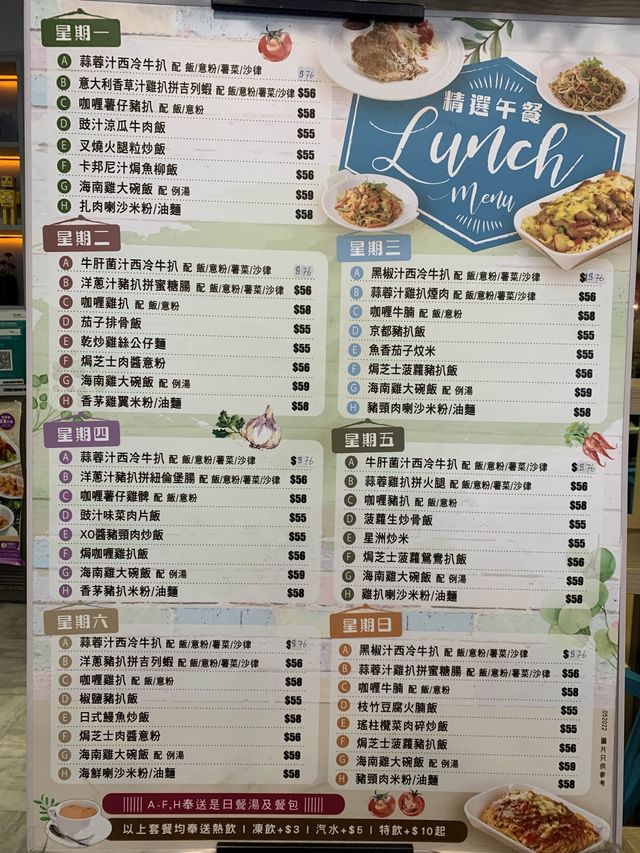 星期一
A 蒜蓉汁西冷牛扒 配 飯/意粉/薯菜/沙律 $76
B 意大利香草汁雞扒拼吉列蝦 配 飯/意粉/薯菜/沙律 $56
C 咖喱薯仔豬扒 配 飯/意粉 $58
D 豉汁涼瓜牛肉飯 $55
E 叉燒火腿粒炒飯 $55
F 卡邦尼汁焗魚柳飯 $56
G 海南雞大碗飯 配 例湯 $59
H 扎肉喇沙米粉/油麵 $58
精選午餐
Lunch
Menu
星期二
A 牛肝菌汁西冷牛扒 配 飯/意粉/薯菜/沙律 $76
B 洋蔥汁豬扒拼蜜糖腸 配 飯/意粉/薯菜/沙律 $56
C 咖喱雞扒 配 飯/意粉 $58
D 茄子排骨飯 $55
E 乾炒雞絲公仔麵 $55
F 焗芝士肉醬意粉 $56
G 海南雞大碗飯 配 例湯 $59
H 香茅雞翼米粉/油麵 $58
星期三
A 黑椒汁西冷牛扒 配 飯/意粉/薯菜/沙律 $76
B 蒜蓉汁雞扒煙肉 配 飯/意粉/薯菜/沙律 $56
C 咖喱牛腩 配 飯/意粉 $58
D 京都豬扒飯 $55
E 魚香茄子炆米 $55
F 焗芝士菠蘿豬扒飯 $56
G 海南雞大碗飯 配 例湯 $59
H 豬頸肉喇沙米粉/油麵 $58
星期四
A 蒜蓉汁西冷牛扒 配 飯/意粉/薯菜/沙律 $76
B 洋蔥汁豬扒拼紐倫堡腸 配 飯/意粉/薯菜/沙律 $56
C 咖喱薯仔雞髀 配 飯/意粉 $58
D 豉汁味菜肉片飯 $55
E XO醬豬頸肉炒飯 $55
F 焗咖喱雞扒飯 $56
G 海南雞大碗飯 配 例湯 $59
H 香茅豬扒米粉/油麵 $58
星期五
A 牛肝菌汁西冷牛扒 配 飯/意粉/薯菜/沙律 $76
B 蒜蓉雞扒拼火腿 配 飯/意粉/薯菜/沙律 $56
C 咖喱豬扒 配 飯/意粉 $58
D 菠蘿生炒骨飯 $55
E 星洲炒米 $55
F 焗芝士菠蘿鴛鴦扒飯 $56
G 海南雞大碗飯 配 例湯 $59
H 雞扒喇沙米粉/油麵 $58
星期六
A 蒜蓉汁西冷牛扒 配 飯/意粉/薯菜/沙律 $76
B 洋蔥豬扒拼吉列蝦 配 飯/意粉/薯菜/沙律 $56
C 咖喱雞扒 配 飯/意粉 $58
D 椒鹽豬扒飯 $55
E 日式鰻魚炒飯 $58
F 焗芝士肉醬意粉 $56
G 海南雞大碗飯 配 例湯 $59
H 海鮮喇沙米粉/油麵 $58
星期日
A 黑椒汁西冷牛扒 配 飯/意粉/薯菜/沙律 $76
B 蒜蓉汁雞扒拼蜜糖腸 配 飯/意粉/薯菜/沙律 $56
C 咖喱牛腩 配 飯/意粉 $58
D 枝竹豆腐火腩飯 $55
E 瑤柱欖菜肉碎炒飯 $55
F 焗芝士菠蘿豬扒飯 $56
G 海南雞大碗飯 配 例湯 $59
H 豬頸肉米粉/油麵 $58
052022 圖片只供參考
A-F,H奉送是日餐湯及餐包
以上套餐均奉送熱飲 | 凍飲+$3 | 汽水+$5 | 特飲+$10起